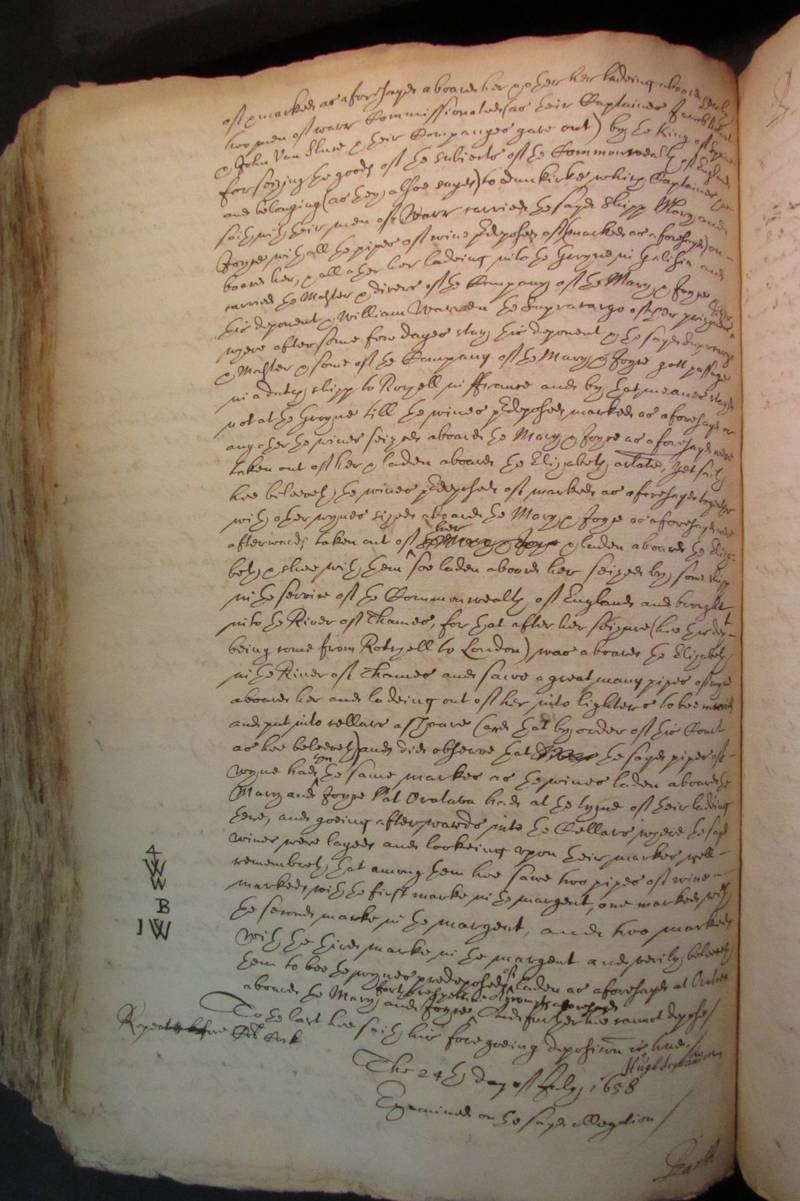 of & marked as aforesayd aboard her & other her ladeing aboard
two men of warr Commissionated (as their Captaines Jacob
& John Van Sluce & their Companyes gave out) by the King of Spaine
for seizing the goods of the subiects of the Commonwealth of England
and belonging (as they alsoe sayd) to dunkirke which Captaines
saith with their men of Warr carried the sayd shipp Mary and
Joyce, with all the pipes of wine predeposed of (marked as aforesayd) on
board her, & all other her ladeing into the Groyne in Galisia and
carried the Master & divers of the Company of the Mary & Joyce
this deponent & William Warren the Supracargo of her prisoners
where after some few dayes stay this deponent & the sayd Supracargo
& Master & some of the Company of the Mary & Joyce gott passage
in a dutch shipp to Rochell in ffrance and by that meanes stayed
not at the Groyne till the wines predeposed marked as aforesayd or
any other the wines seized aboard the Mary & Joyce as aforesayd were
taken out of her & laden aboard the Elizabeth arlate, Yet saith
hee beleeveth the wines predeposed of marked as aforesayd together
with other wynes seized aboard the Mary & Joyce as aforesayd were
afterwards taken out of her & laden aboard the Eliza
beth & shee with them soe laden aboard her seized by some shipp
in the service of the Commonwealth of England and brought
into the River of Thames, for that after her seizure (hee this dept
being come from Rochell to London) was aboard the Elizabeth
in the River of Thames and sawe a great many pipes of wyne
aboard her and ladeing out of her into lighters to bee carried
and put into cellars a shoare (and that by order of this Court
as hee beleeveth) and did observe that the sayd pipes of
wyne had on the same markes as the wines laden aboard the
Mary and Joyce at Oratava had at the tyme of their ladeing
there, and goeing afterwards into the Cellars where the sayd
wines were layed and lookeing upon their markes well
remembreth that among them hee sawe two pipes of wine
marked with the first marke in the margent, one marked with
the second marke in the margent, and two marked
with the third marke in the margent and verily beleeveth
them to bee the wynes predeposed of laden as aforesayd at Oratava
aboard the Mary and Joyce And further hee cannot depose/
4
W
W
B
IW
To the last hee saith his foregoeing deposition is true/
Repeated before Col Cock
The 24th day of July 1658
Examined on the sayd allegation/